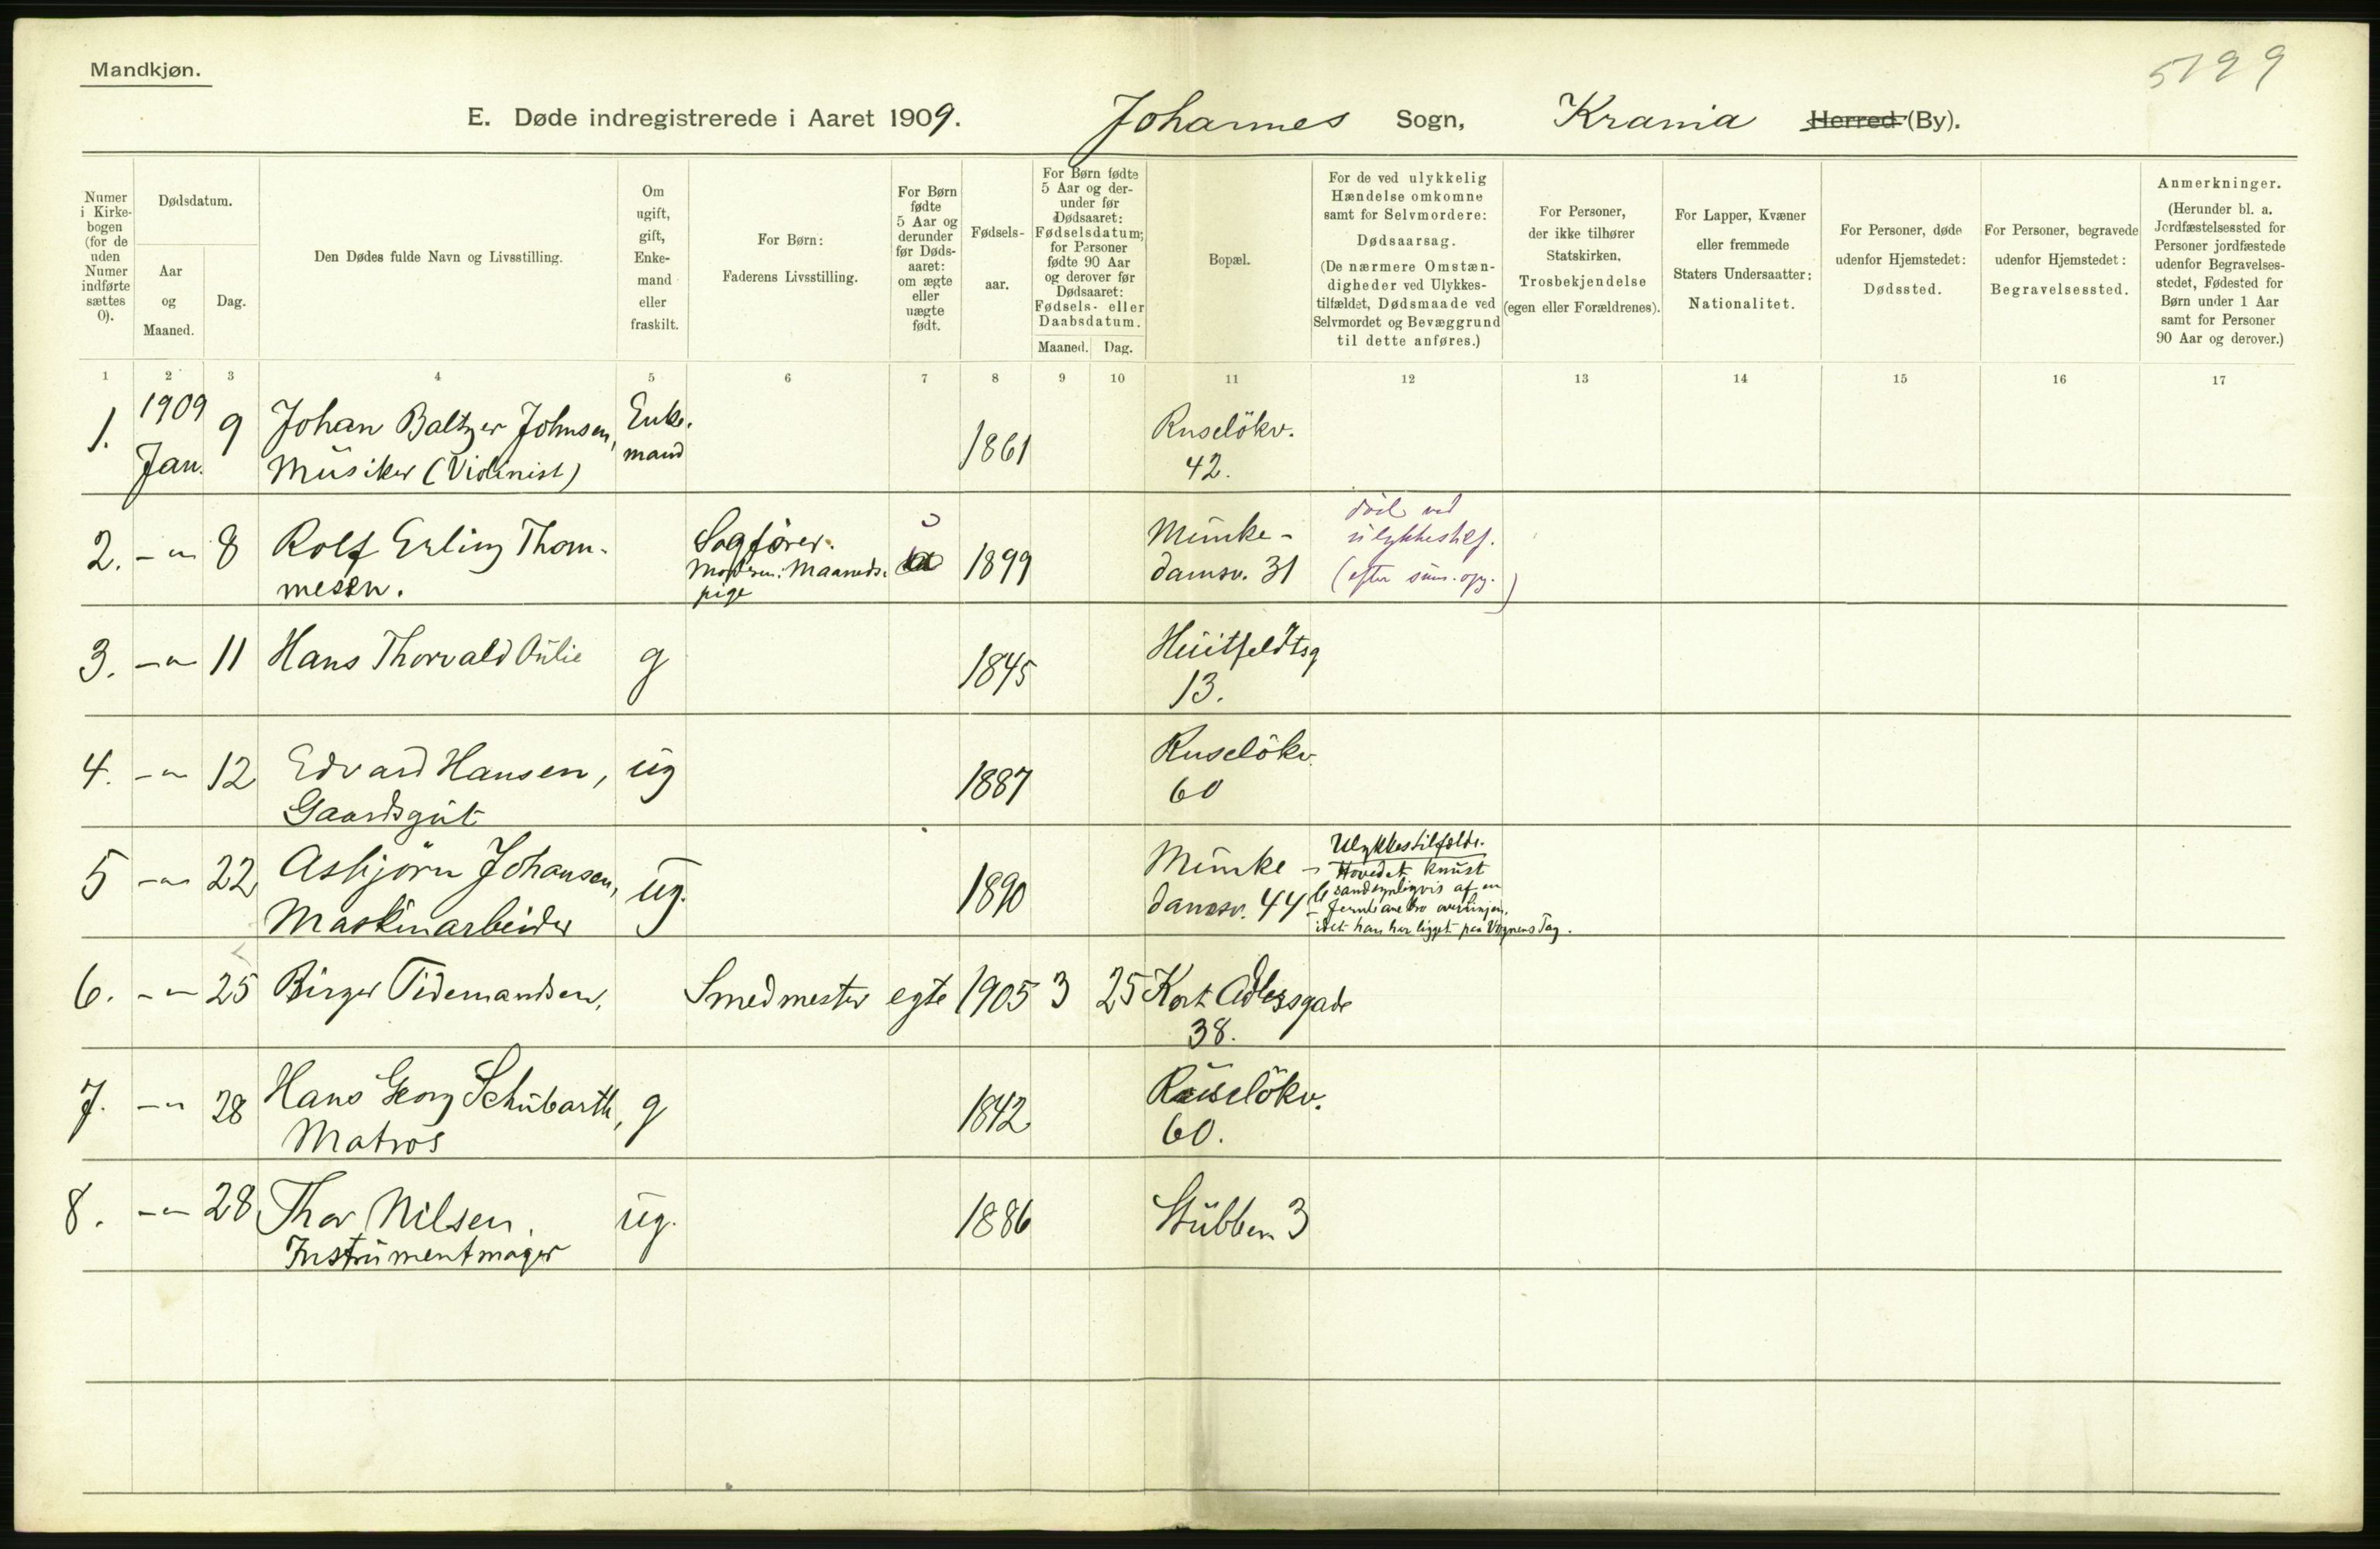 Mandkjøn.
5199
E. Døde indregistrerede i Aaret 1909. Johannes Sogn, Krania Herred (By).
Numer i Kirkebogen (for de uden Numer indførte sættes 0).
Dødsdatum.
Aar og Maaned.
Dag.
Den Dødes fulde Navn og Livsstilling.
Om ugift, gift, Enkemand eller fraskilt.
For Børn:
Faderens Livsstilling.
For Børn fødte 5 Aar og derunder før Dødsaaret: om ægte eller uægte født.
Fødselsaar.
For Børn fødte 5 Aar og derunder før Dødsaaret: Fødselsdatum; for Personer fødte 90 Aar og derover før Dødsaaret: Fødsels- eller Daabsdatum.
Maaned. Dag.
Bopæl.
For de ved ulykkelig Hændelse omkomne samt for Selvmordere:
Dødsaarsag.
(De nærmere Omstændigheder ved Ulykkestilfældet, Dødsmaade ved Selvmordet og Bevæggrund til dette anføres.)
For Personer, der ikke tilhører Statskirken,
Trosbekjendelse
(egen eller Forældrenes).
For Lapper, Kvæner eller fremmede Staters Undersaatter:
Nationalitet.
For Personer, døde udenfor Hjemstedet:
Dødssted.
For Personer, begravede udenfor Hjemstedet:
Begravelsessted.
Anmerkninger.
(Herunder bl. a. Jordfæstelsessted for Personer jordfæstede udenfor Begravelsesstedet, Fødested for Børn under 1 Aar samt for Personer 90 Aar og derover.)
1 2 3 4 5 6 7 8 9 10 11 12 13 14 15 16 17
1. 1909 Jan. 9 Johan Baltzer Johnsen, Enke. 1861 Ruselökv.
Musiker (Violinist) mand 42.
2. -"- 8 Rolf Erling Thom- Sagfører. u 1899 Munke- død ved
messen. Moderen: Maaneds. damsv. 31 ulykkestilf.
pige (efter sum. opg.)
3. -"- 11 Hans Thorvald Aulie g 1845 Huitfeldtsg
13.
4. -"- 12 Edvard Hansen, ug 1887 Ruselökv.
Gaardsgut 60
5 -"- 22 Asbjörn Johansen, ug. 1890 Munke- Ulykkestilfælde.
Maskinarbeider damsv. 44 b Hovedet knust
sandsynligvis af en
Jernbanebro over linjen,
idet han har ligget paa Vognens Tag.
6. -"- 25 Birger Tidemandsen, Smedmester egte 1905 3 25 Kort Adlersgade
38.
7. -"- 28 Hans Georg Schubarth, g 1842 Ruselökv.
Matros 60.
8. -"- 28 Thor Nilsen, ug. 1886 Stubben 3
Instrumentmager